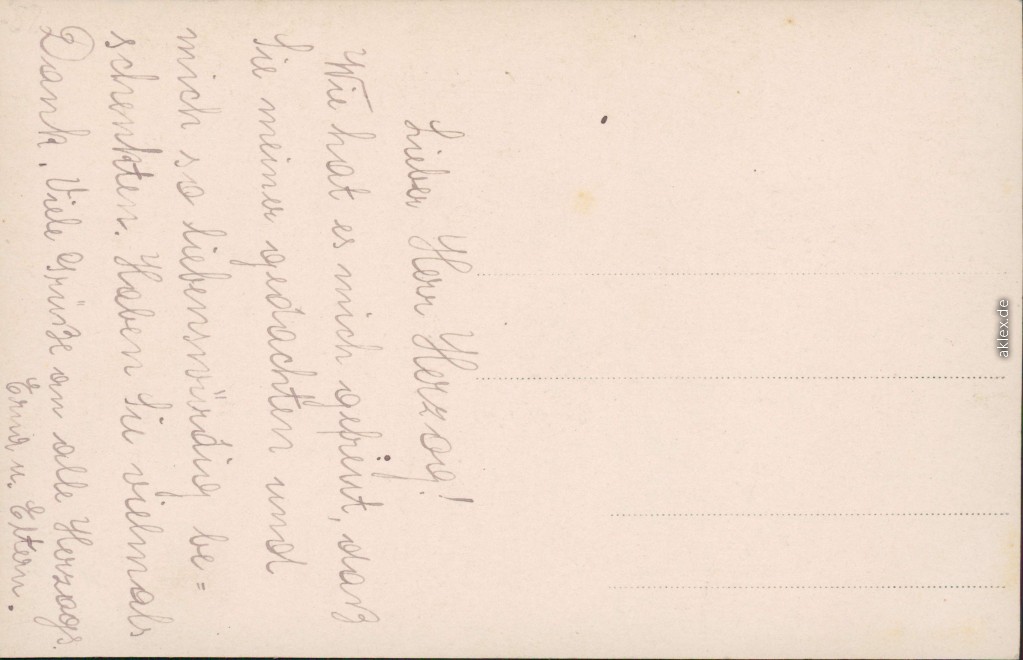 Lieber Herr Herzog!
Wie hat es mich gefreut, daß
Sie meiner gedachten und
mich so liebenswürdig be=
schenkten. Haben Sie vielmals
Dank. Viele Grüße an alle Herzogs.
Erna u. Eltern.
aklex.de